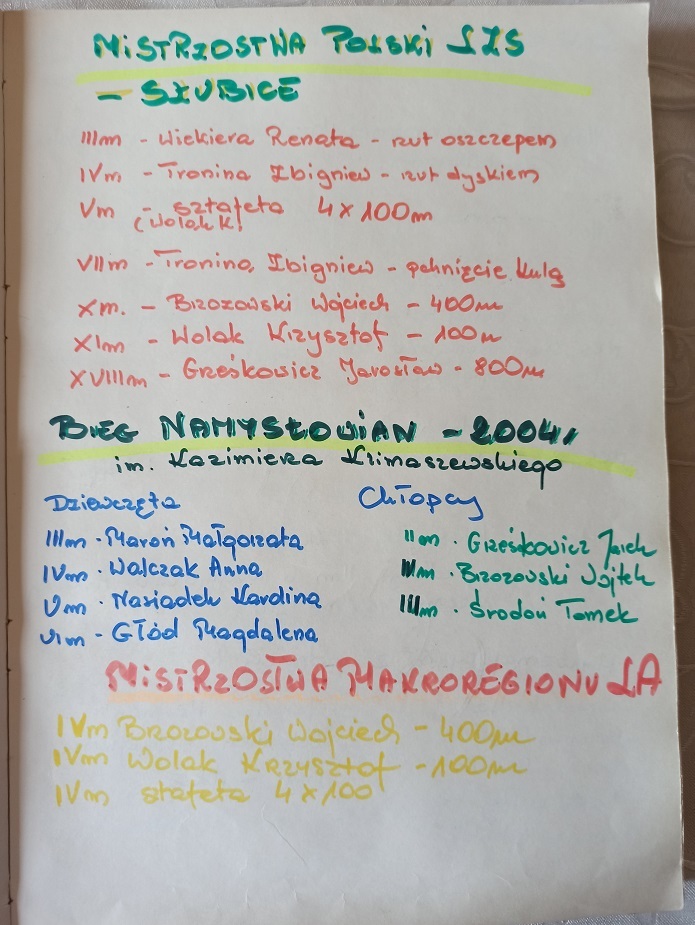 MISTRZOSTWA POLSKI LZS
– SŁUBICE
IIIm - Wiekiera Renata - rzut oszczepem
IVm - Tronina Zbigniew - rzut dyskiem
Vm - sztafeta 4x100m
(Wolak K)
VIIm - Tronina Zbigniew - pchnięcie kulą
Xm. - Brozowski Wojciech - 400m
XIm - Wolak Krzysztof - 100m
XVIIIm - Greśkowicz Jarosław - 800m
BIEG NAMYSŁOWIAN - 2004r
im. Kazimierza Klimaszewskiego
Dziewczęta
IIIm - Maroń Małgorzata
IVm - Walczak Anna
Vm - Nasiadek Karolina
VIm - Głód Magdalena
Chłopcy
IIm - Greśkowicz Jarek
IIIm - Brozowski Wojtek
IIIm - Środoń Tomek
MISTRZOSTWA MAKROREGIONU LA
IVm Brozowski Wojciech - 400m
IVm Wolak Krzysztof - 100m
IVm sztafeta 4x100